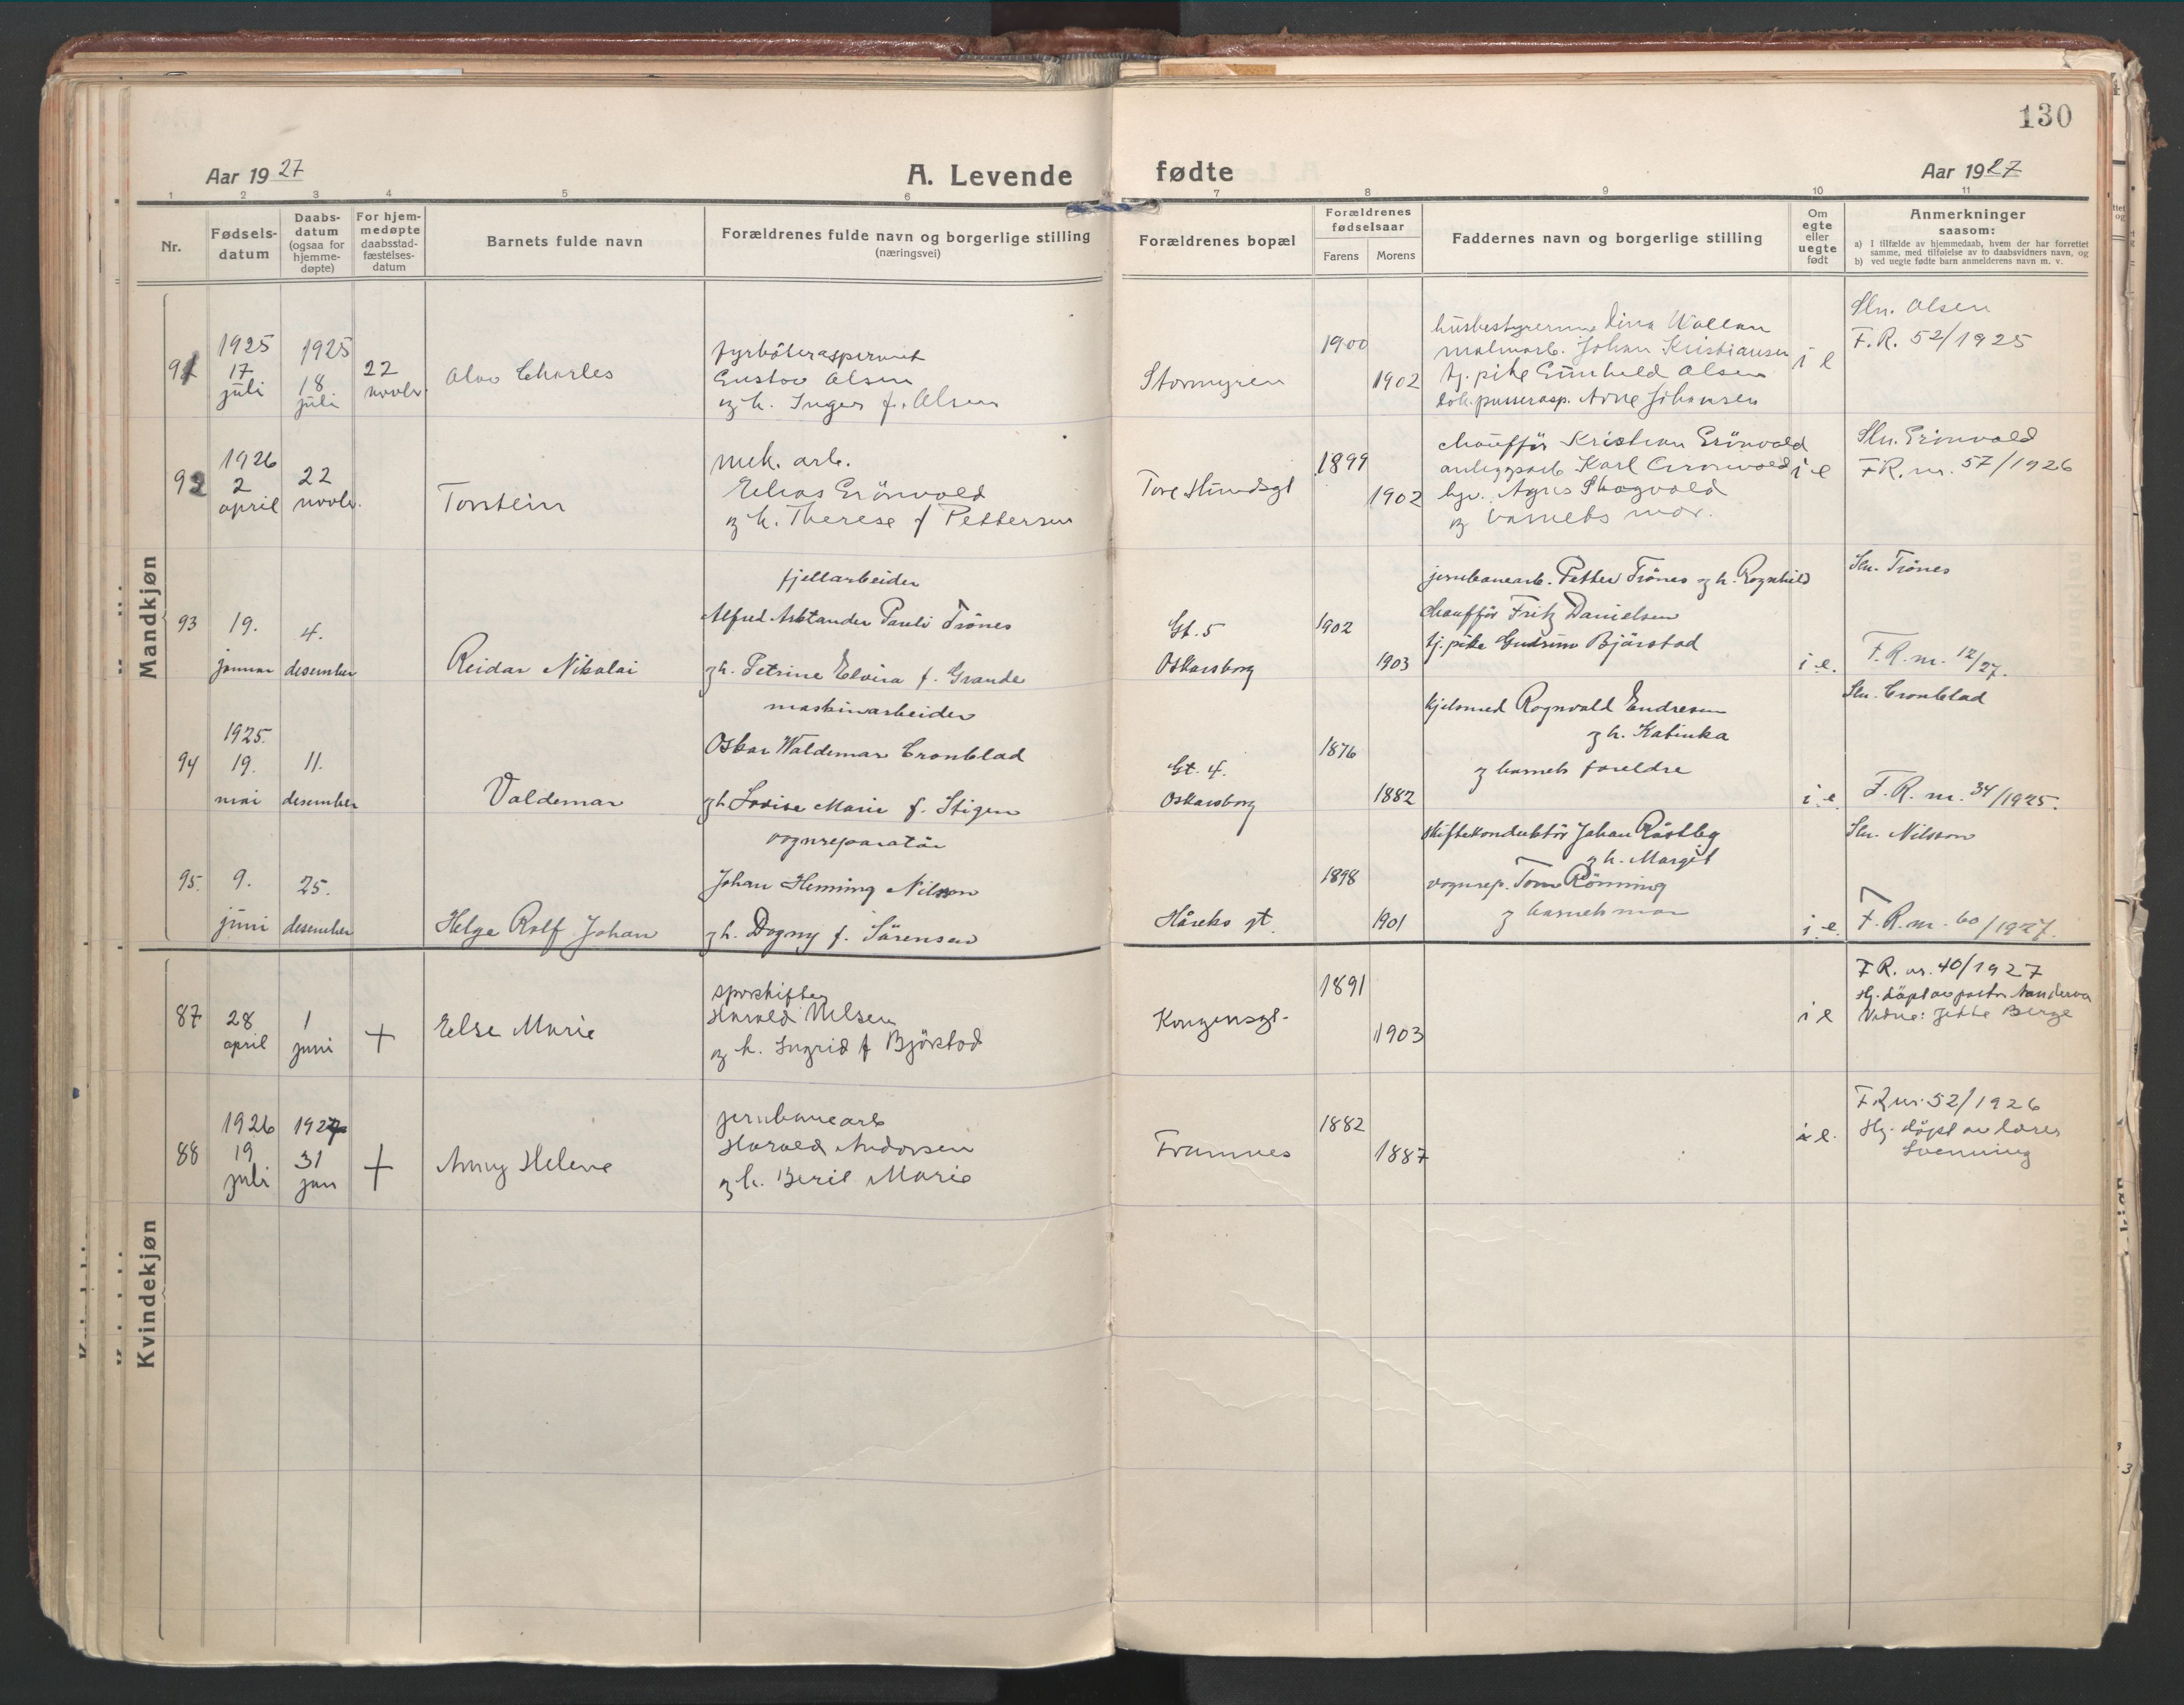 130
Aar 1927
A. Levende
fødte
Aar 1927
1 2 3 4 5 6 7 8 9 10 11
Nr.
Fødsels-
datum
Daabs-
datum
(ogsaa for
hjemme-
døpte)
For hjem-
medøpte
daabsstad-
fæstelses-
datum
Barnets fulde navn
Forældrenes fulde navn og borgerlige stilling
(næringsvei)
Forældrenes bopæl
Forældrenes
fødselsaar
Farens Morens
Faddernes navn og borgerlige stilling
Om
egte
eller
uegte
født
Anmerkninger
saasom:
a) I tilfælde av hjemmedaab, hvem der har forrettet
samme, med tilføielse av to daabsvidners navn, og
b) ved uegte fødte barn anmelderens navn m. v.
Mandkjøn
91
1925
17
juli
1925
18
juli
22
novbr.
Olav Charles
fyrbøteraspirant
Gustav Olsen
og h. Inger f. Olsen
Stormyren
1900
1902
husbestyrerinne Dina
malmarb. Johan Kristiansen
tj. pike Gunhild Olsen
lok.pusserasp. Arne Johansen
i e
Sln. Olsen
F.R. 52/1925
92
1926
2
april
22
novbr.
Torstein
mek. arb.
Elias Grönvold
og h. Therese f Pettersen
Tore Hundsgt
1899
1902
chaufför Kristian Grönvold
anleggsarb. Karl Gronvold
Agnes Skogvold
og barnets mor.
i e
Sln. Grönvold
F.R. nr. 57/1926
93
19.
januar
4.
desember
Reidar Nikolai
fjellarbeider
Alfred Pareli Trönes
og h. Petrine Elvira f. Grande
Gt. 5
Oskarsborg
1902
1903
jernbanearb. Petter Trönes og h. Ragnhild
chaufför Fritz Danielsen
tj. pike Gudrun Bjärstad
i e.
Sln. Trönes
F.R. nr. 12/27.
94
1925.
19.
mai
11.
desember
Valdemar
maskinarbeider
Oskar Waldemar Cronblad
og h Lovise Marie f. Stigen
Gt. 4.
Oskarsborg
1876
1882
kjelsmed Ragnvald Endresen
og h. Katinka
og barnets foreldre
i e.
Sln. Cronblad
F.R. nr. 34/1925.
95.
9.
juni
25.
desember
Helge Rolf Johan
vognreparatör
Johan Henning Nilsson
og h. Dagny f. Sörensen
Håreks gt.
1898
1901
skiftekonduktör Johan
og h. Margit
vognrep. Tom Rönning
og barnets mor
i e.
Sln. Nilsson
F.R. nr. 60/1927.
Kvindekjøn
87
28
april
1
juni
+
Else Marie
sporskifter
Harald Nilsen
og h. Ingrid f Bjökstad
Kongensgt.
1891
1903
i e
F R. nr. 40/1927
Hj. döpt av pastor
Vidne: Jette Berge
88
1926
19
juli
1927
31
jan
+
Anny Helene
jernbanearb
Harald Andorsen
og h. Beril Marie
Framnes
1882
1887
i e.
F R nr. 52/1926
Hj. döpt av lærer
Svenning